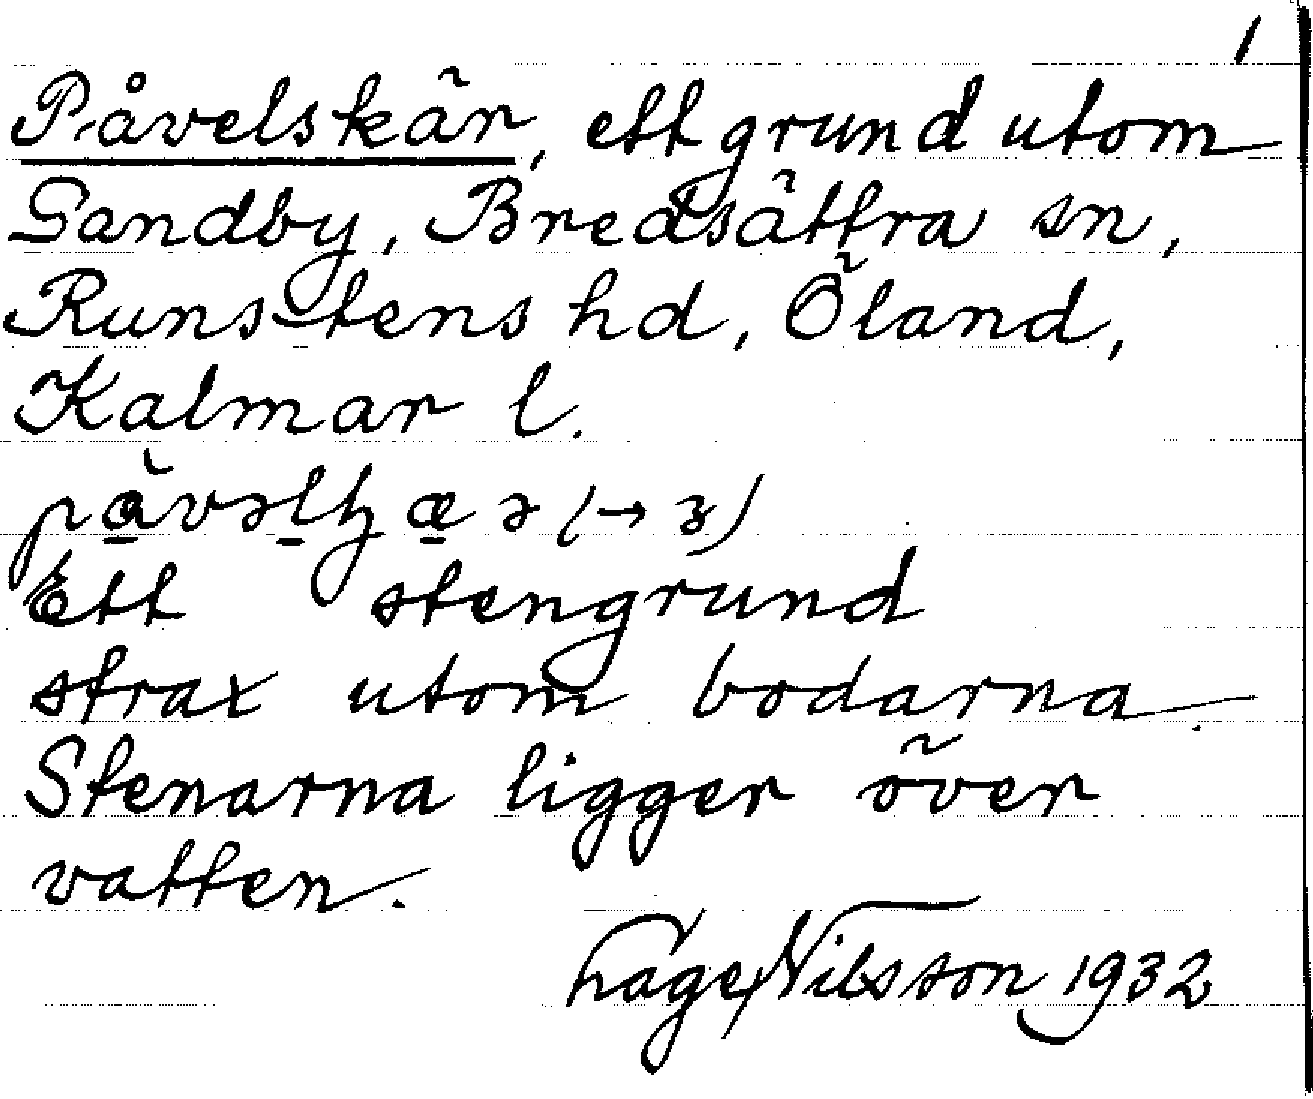 1
Påvelskär, ett grund utom
Sandby, Bredsättra sn,
Runstens hd, Öland,
Kalmar l.
Ett stengrund
strax utom bodarna.
Stenarna ligger över
vatten.
Hage Nilsson 1932